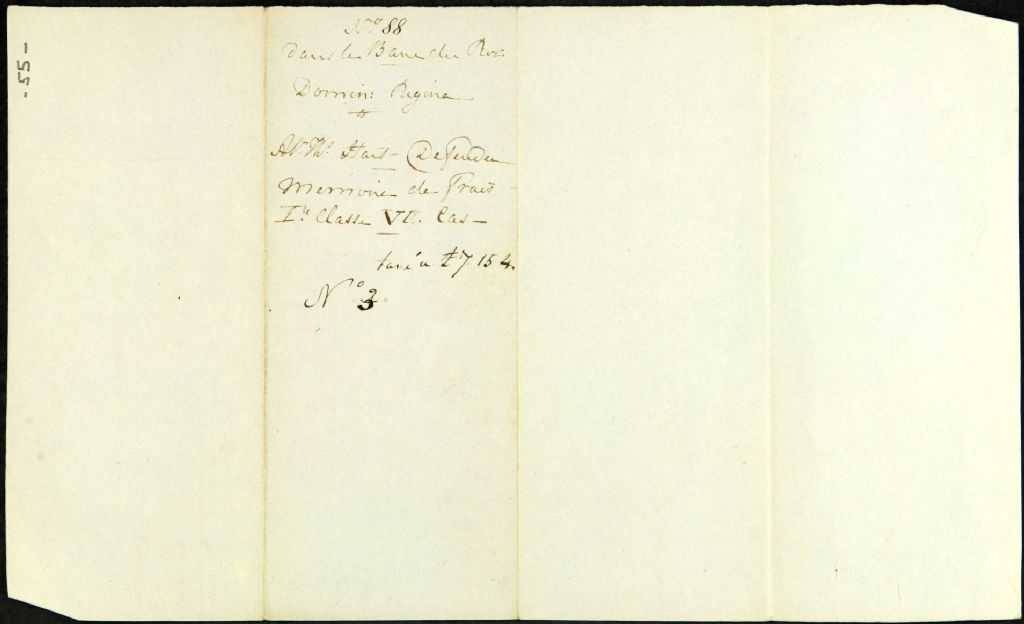 - 55 -
No. 88
Dans le Banc du Roi
Domin: Regina
Ar. Ths. Hart - Defendeu
Memoire de Frais
Ire Classe VIe. Cas -
taxé a £7. 15 4.
No 3